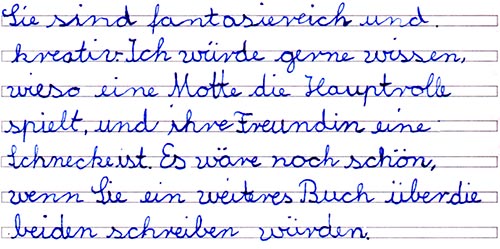 Sie sind fantasiereich und
kreativ. Ich würde gerne wissen,
wieso eine Motte die Hauptrolle
spielt, und ihre Freundin eine
Schnecke ist. Es wäre noch schön,
wenn Sie ein weiteres Buch über die
beiden schreiben würden.